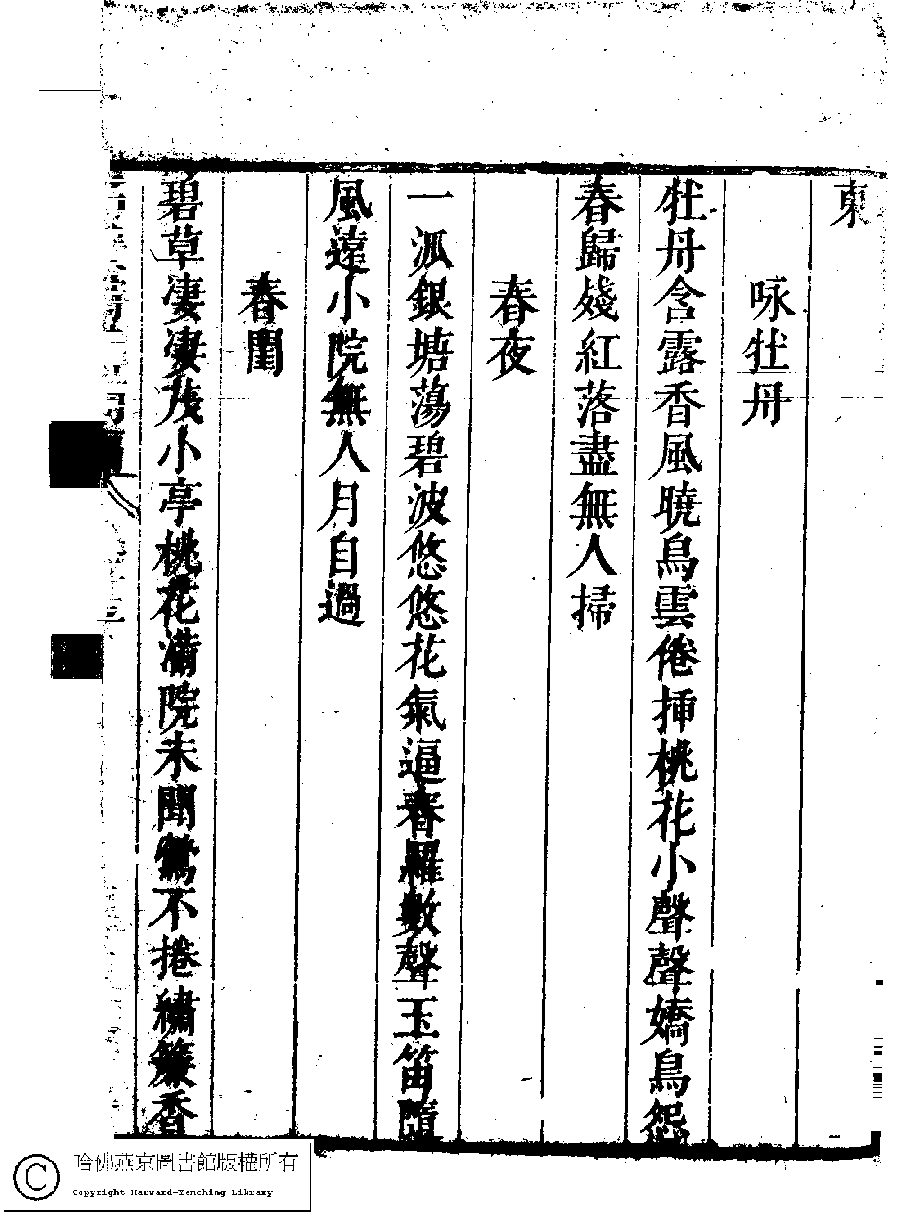 東
咏牡丹
牡丹含露香風曉鳥雲倦揷桃花小聲聲嬌鳥怨
春歸殘紅落盡無人掃
春夜
一泒銀塘蕩碧波悠悠花氣逼春羅數聲玉笛隨
風遠小院無人月自過
春閨
碧草凄凄茂小亭桃花滿院未聞鶯不捲繡簾香
哈佛燕京圖書館版權所有
Copyright Harvard-Yenching Library